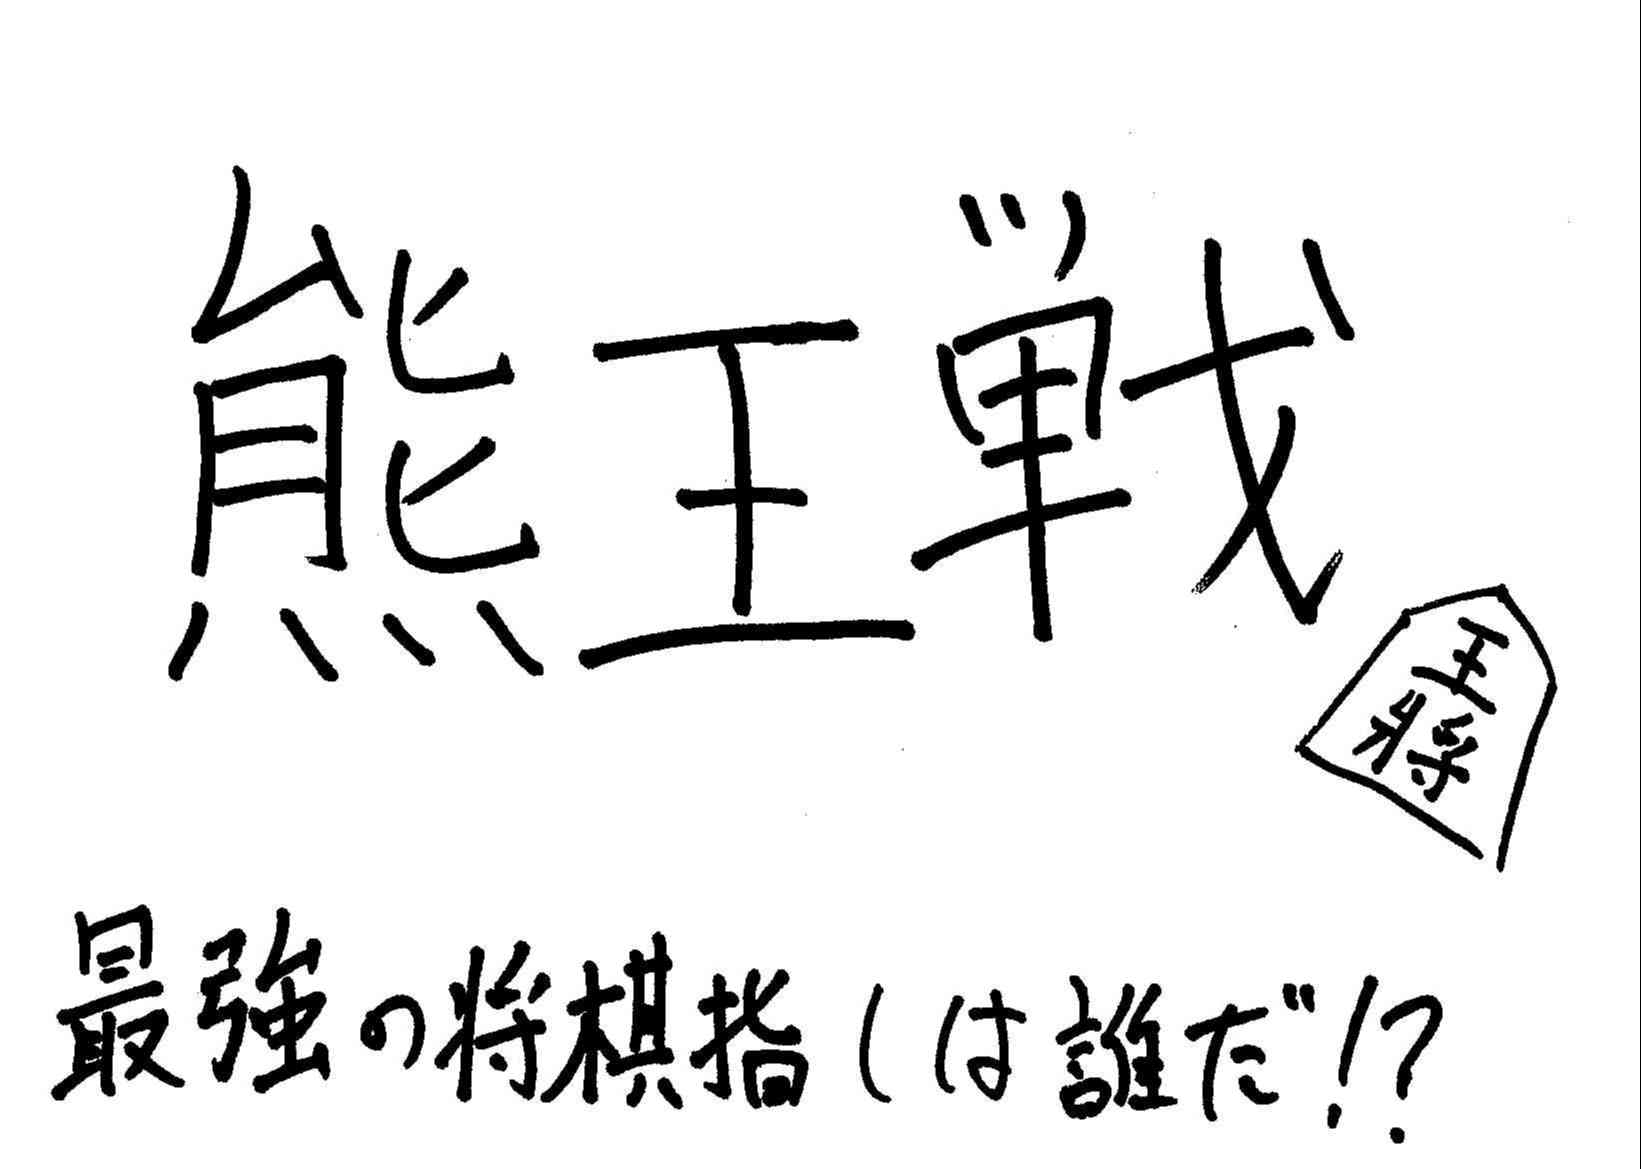 熊王戦
王将
最強の将棋指しは誰だ!?